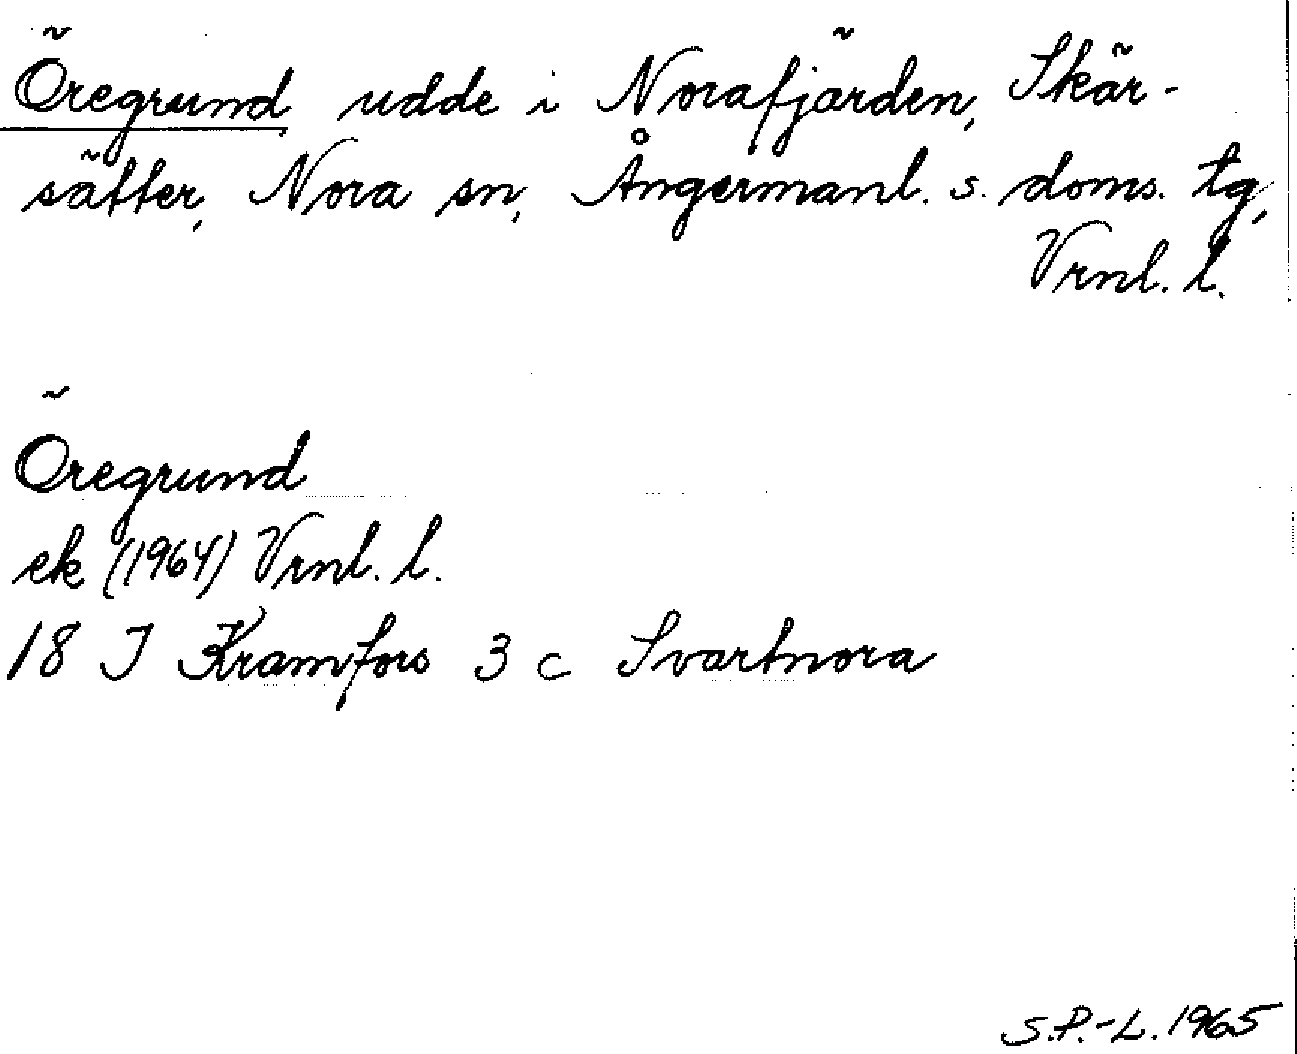 Öregrund udde i Norafjärden, Skär-
sätter, Nora sn, Ångermanl. s. doms. tg,
Vrnl. l.
Öregrund
ek (1964) Vrnl. l.
18 J Kramfors 3 c Svartnora
S.P.-L. 1965